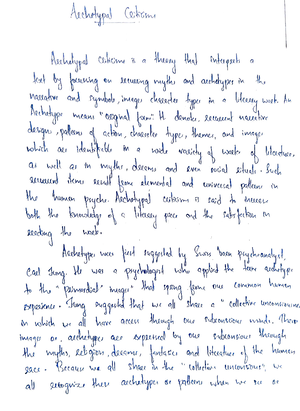 Archetypal Criticism
Archetypal Criticism is a theory that interprets a
text by focusing on recurring myths and archetypes in the
narrative and symbols, images character types in a literary work. An
Archetype means "original form". It denotes, recurrent narrative
designs, patterns of action, character types, themes, and images
which are identifiable in a wide variety of works of literature,
as well as in myths, dreams and even social rituals. Such
recurrent items result from elemental and universal patterns in
the human psyche. Archetypal criticism is said to increase
both the knowledge of a literary piece and the satisfaction in
reading the work.
Archetypes were first suggested by Swiss born psychoanalyst,
Carl Jung. He was a psychologist who applied the term archetype
to the "primordial images" that spring from our common human
experience. Jung suggested that we all share a "collective unconscious"
in which we all have access through our subconscious minds. These
images or, archetypes are expressed by our subconscious through
the myths, religion, dreams, fantasies and literature of the human
race. Because we all share in the "collective unconscious", we
all recognize these archetypes or patterns when we see or